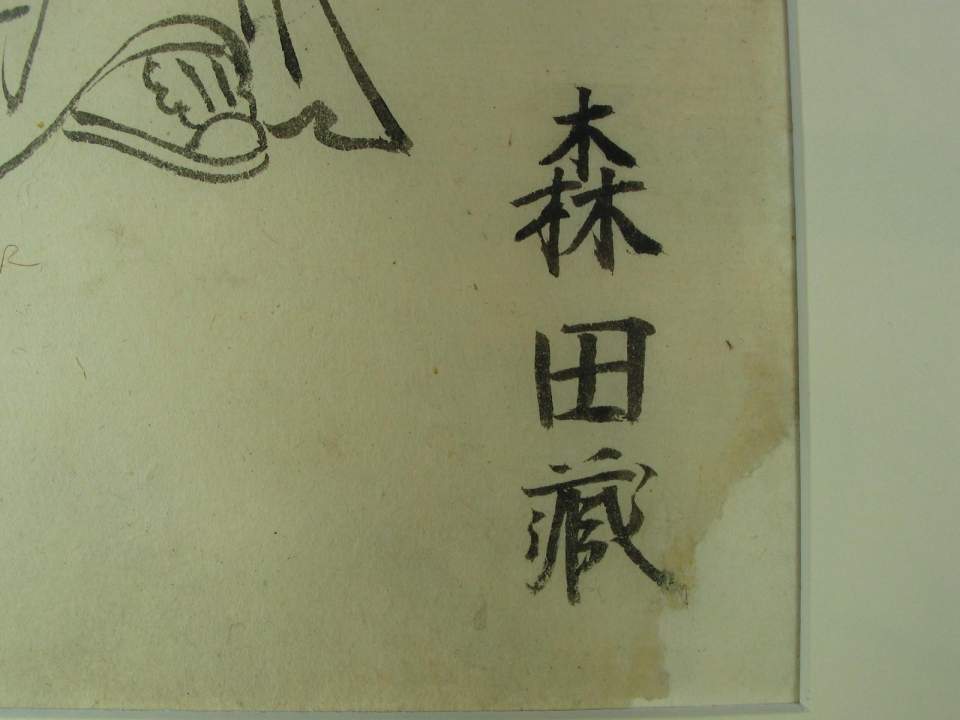 森田藏